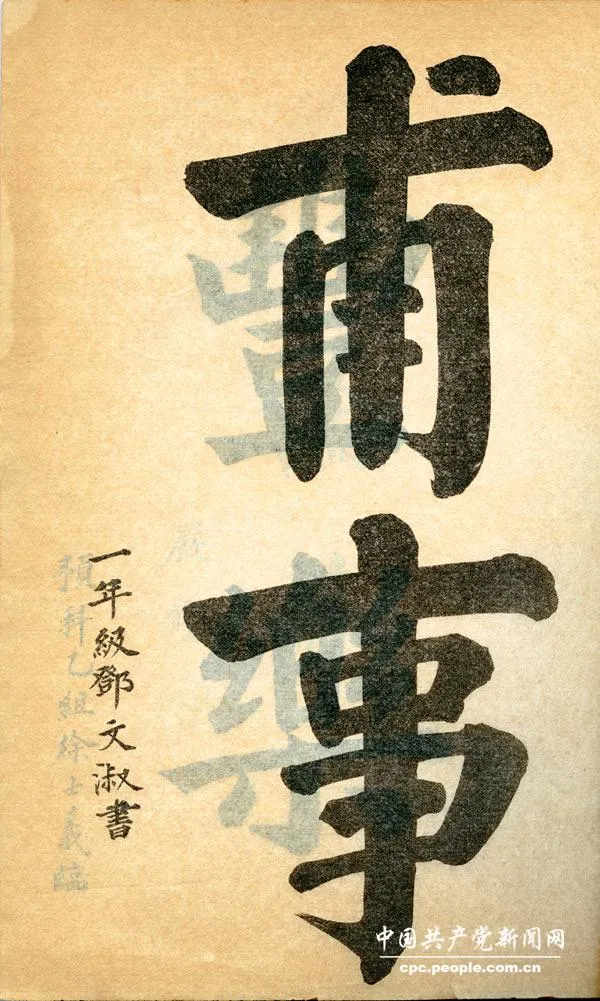 甫事
豐
一年級鄧文淑書
預科乙組徐士義臨
中国共产党新闻网
cpc.people.com.cn